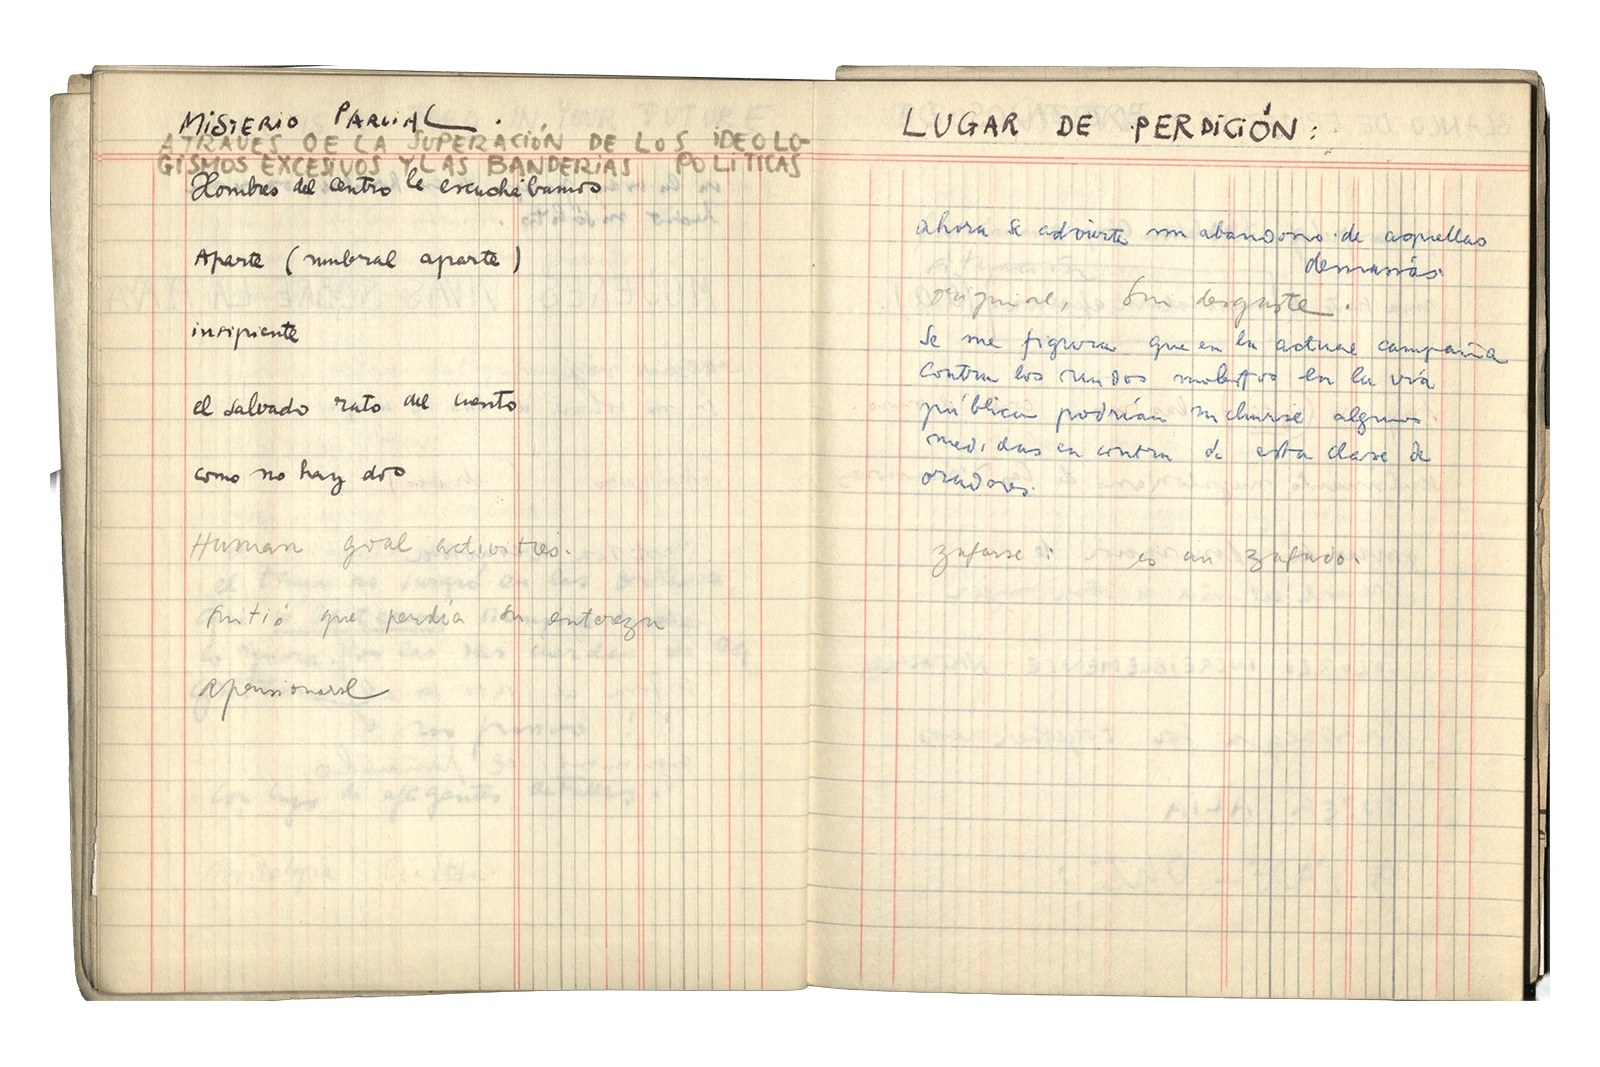 MISTERIO PARCIAL.
ATRAVES DE LA SUPERACIÓN DE LOS IDEOLO-
GISMOS EXCESIVOS Y LAS BANDERIAS POLITICAS
Hombres del centro le escuchábamos
Aparte (umbral aparte)
insipiente
el salvado rato del cuento
como no hay dos
Human goal activities.
Sintió que perdía su entereza
apensionarse
LUGAR DE PERDICIÓN:
ahora se advierte un abandono de aquellas
demasías.
original, sin desgaste.
Se me figura que en la actual campaña
contra los ruidos molestos en la vía
pública podrían incluirse algunas
medidas en contra de esta clase de
oradores.
zafarse: es un zafado.